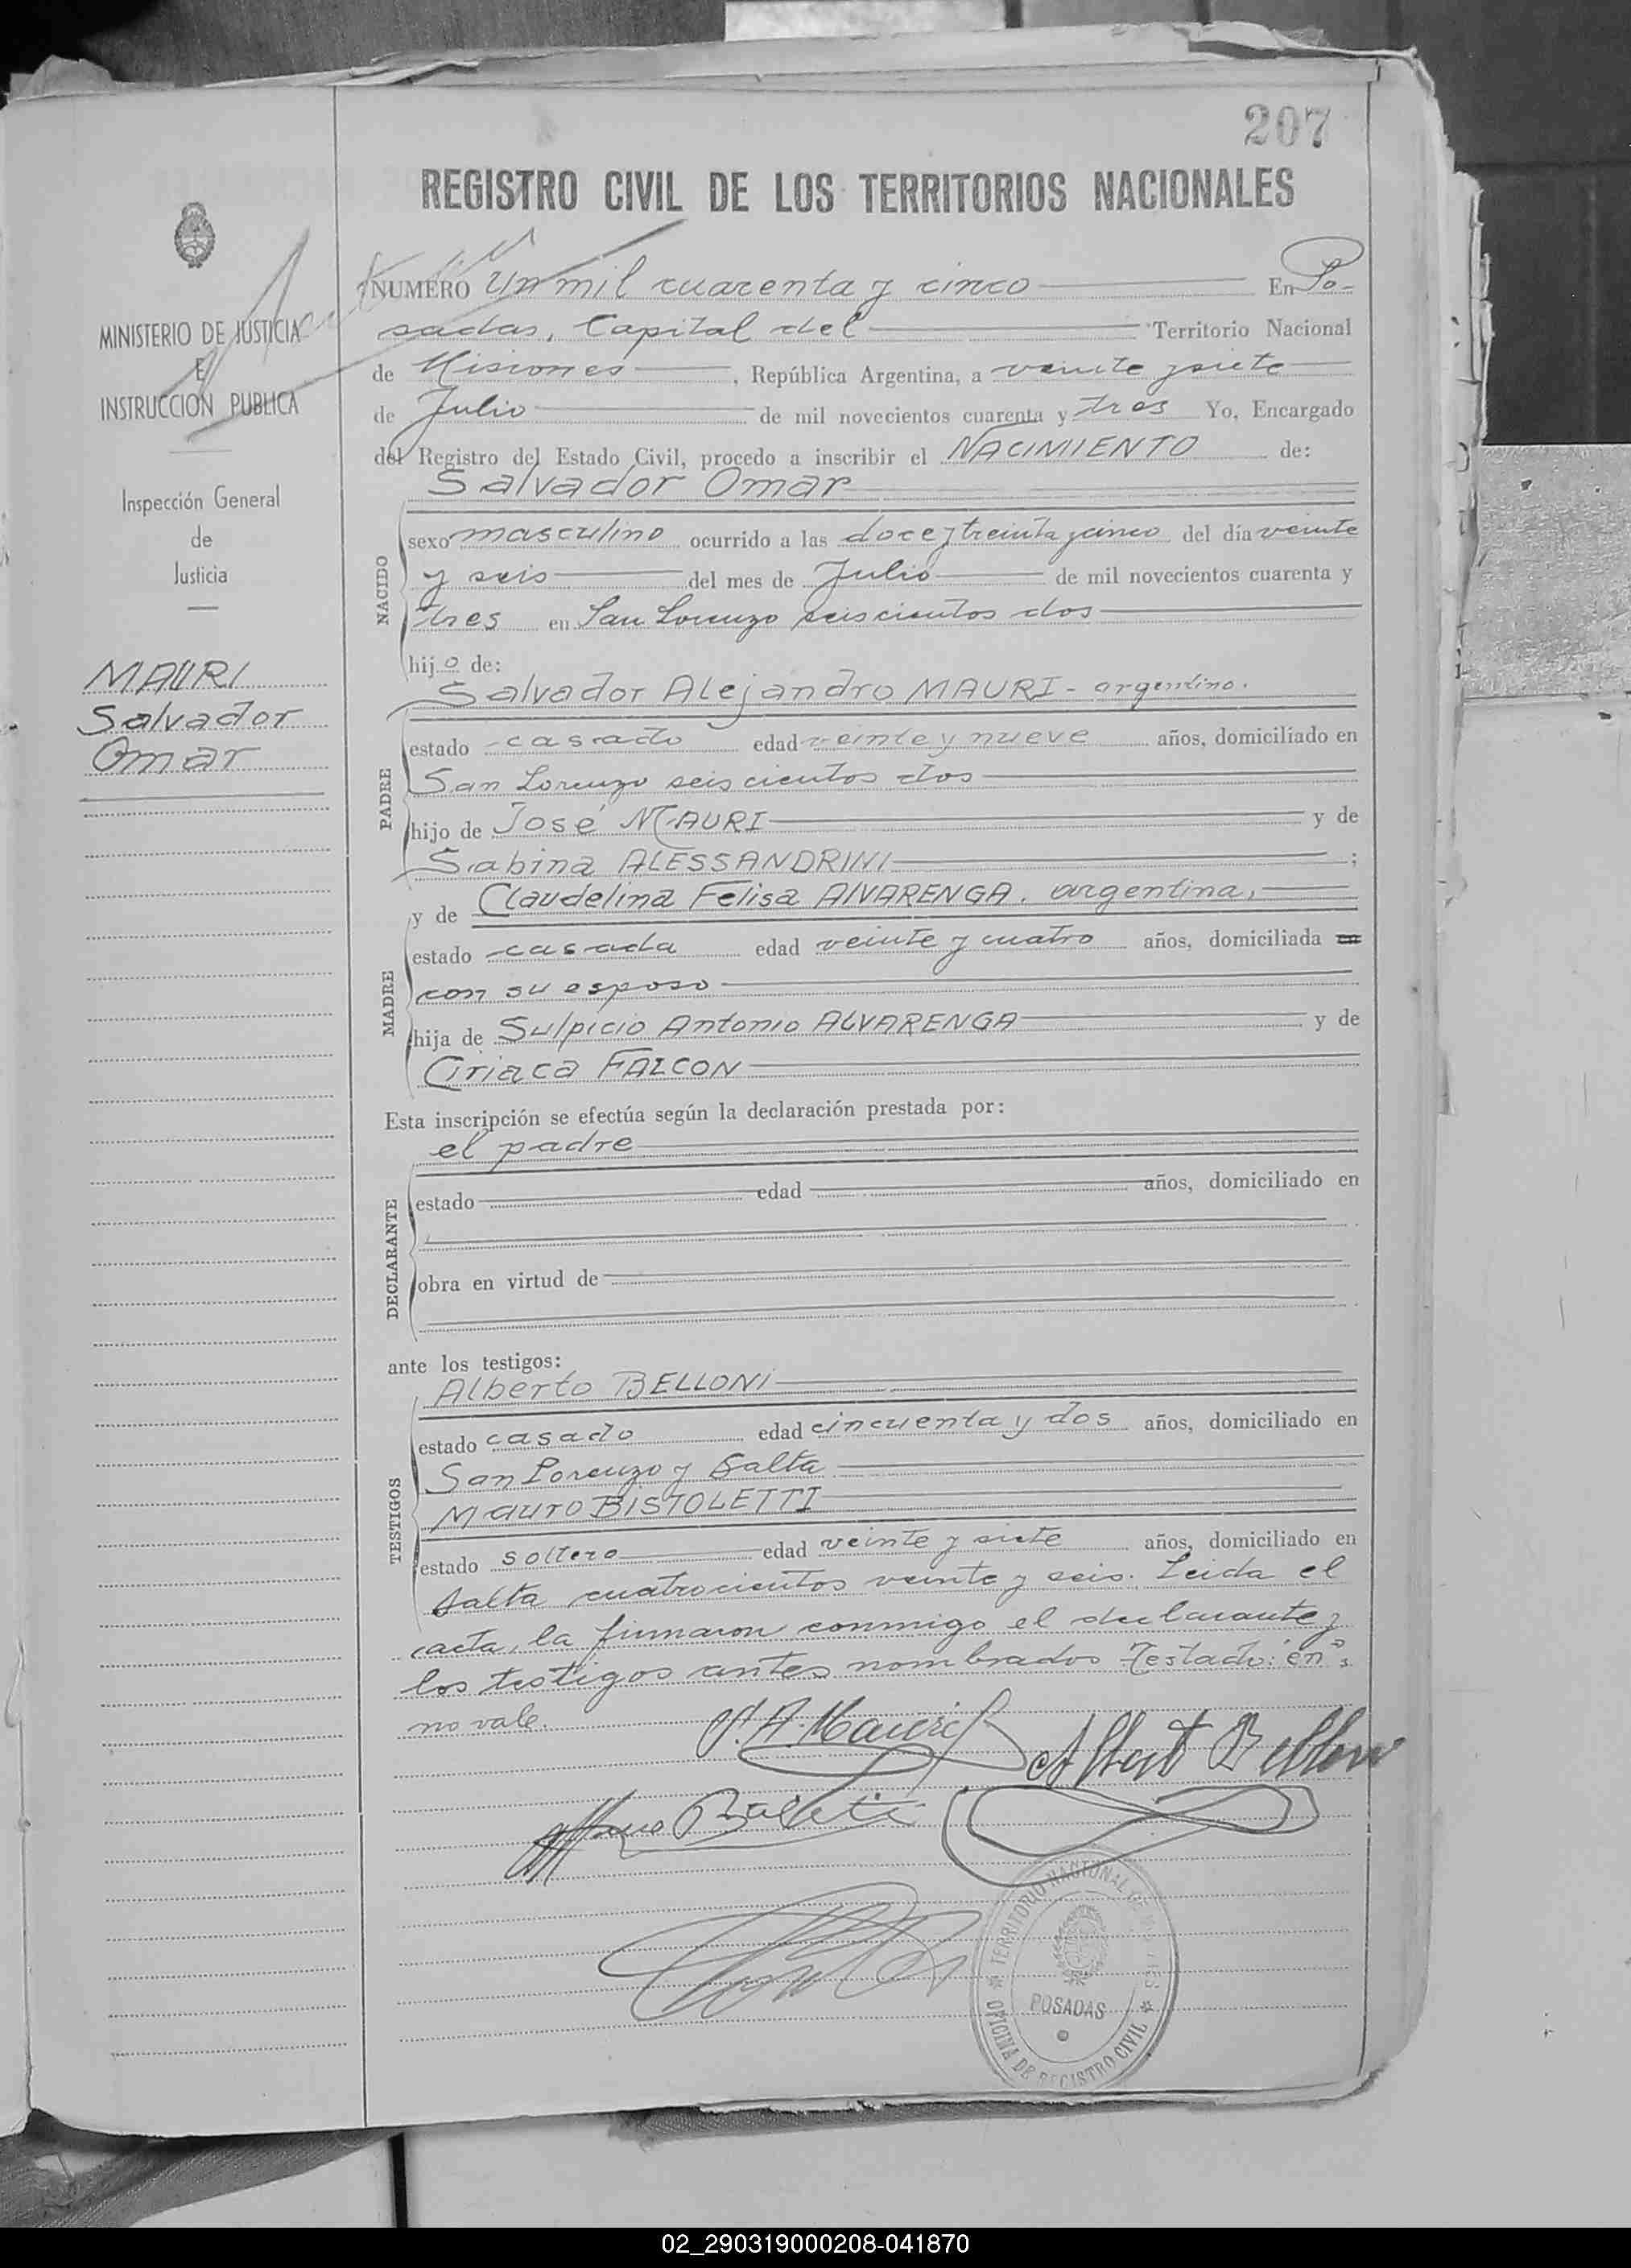 207
REGISTRO CIVIL DE LOS TERRITORIOS NACIONALES
MINISTERIO DE JUSTICIA
E
INSTRUCCION PUBLICA
Inspección General
de
Justicia
MAURI
Salvador
Omar
NUMERO Un mil cuarenta y cinco En Po-
sadas, Capital del Territorio Nacional
de Misiones, República Argentina, a veinte y siete
de Julio de mil novecientos cuarenta y tres Yo, Encargado
del Registro del Estado Civil, procedo a inscribir el NACIMIENTO de:
NACIDO
Salvador Omar
sexo masculino ocurrido a las doce y treinta y cinco del día veinte
y seis del mes de Julio de mil novecientos cuarenta y
tres en San Lorenzo seiscientos dos
hijo de:
PADRE
Salvador Alejandro MAURI - argentino.
estado casado edad veinte y nueve años, domiciliado en
San Lorenzo seiscientos dos
hijo de José MAURI y de
Sabina ALESSANDRINI ;
MADRE
y de Claudelina Felisa ALVARENGA, argentina,
estado casada edad veinte y cuatro años, domiciliada en
con su esposo
hija de Sulpicio Antonio ALVARENGA y de
Ciriaca FALCON
Esta inscripción se efectúa según la declaración prestada por:
DECLARANTE
el padre
estado edad años, domiciliado en
obra en virtud de
ante los testigos:
TESTIGOS
Alberto BELLONI
estado casado edad cincuenta y dos años, domiciliado en
San Lorenzo y Salta
Mauro BISTOLETTI
estado soltero edad veinte y siete años, domiciliado en
Salta cuatrocientos veinte y seis. Leida el
acta, la firmaron conmigo el declarante y
los testigos antes nombrados Testado: "en",
no vale.
S. A. Mauri
Albert Belloni
TERRITORIO NACIONAL DE MISIONES
POSADAS
OFICINA DE REGISTRO CIVIL
02_290319000208-041870